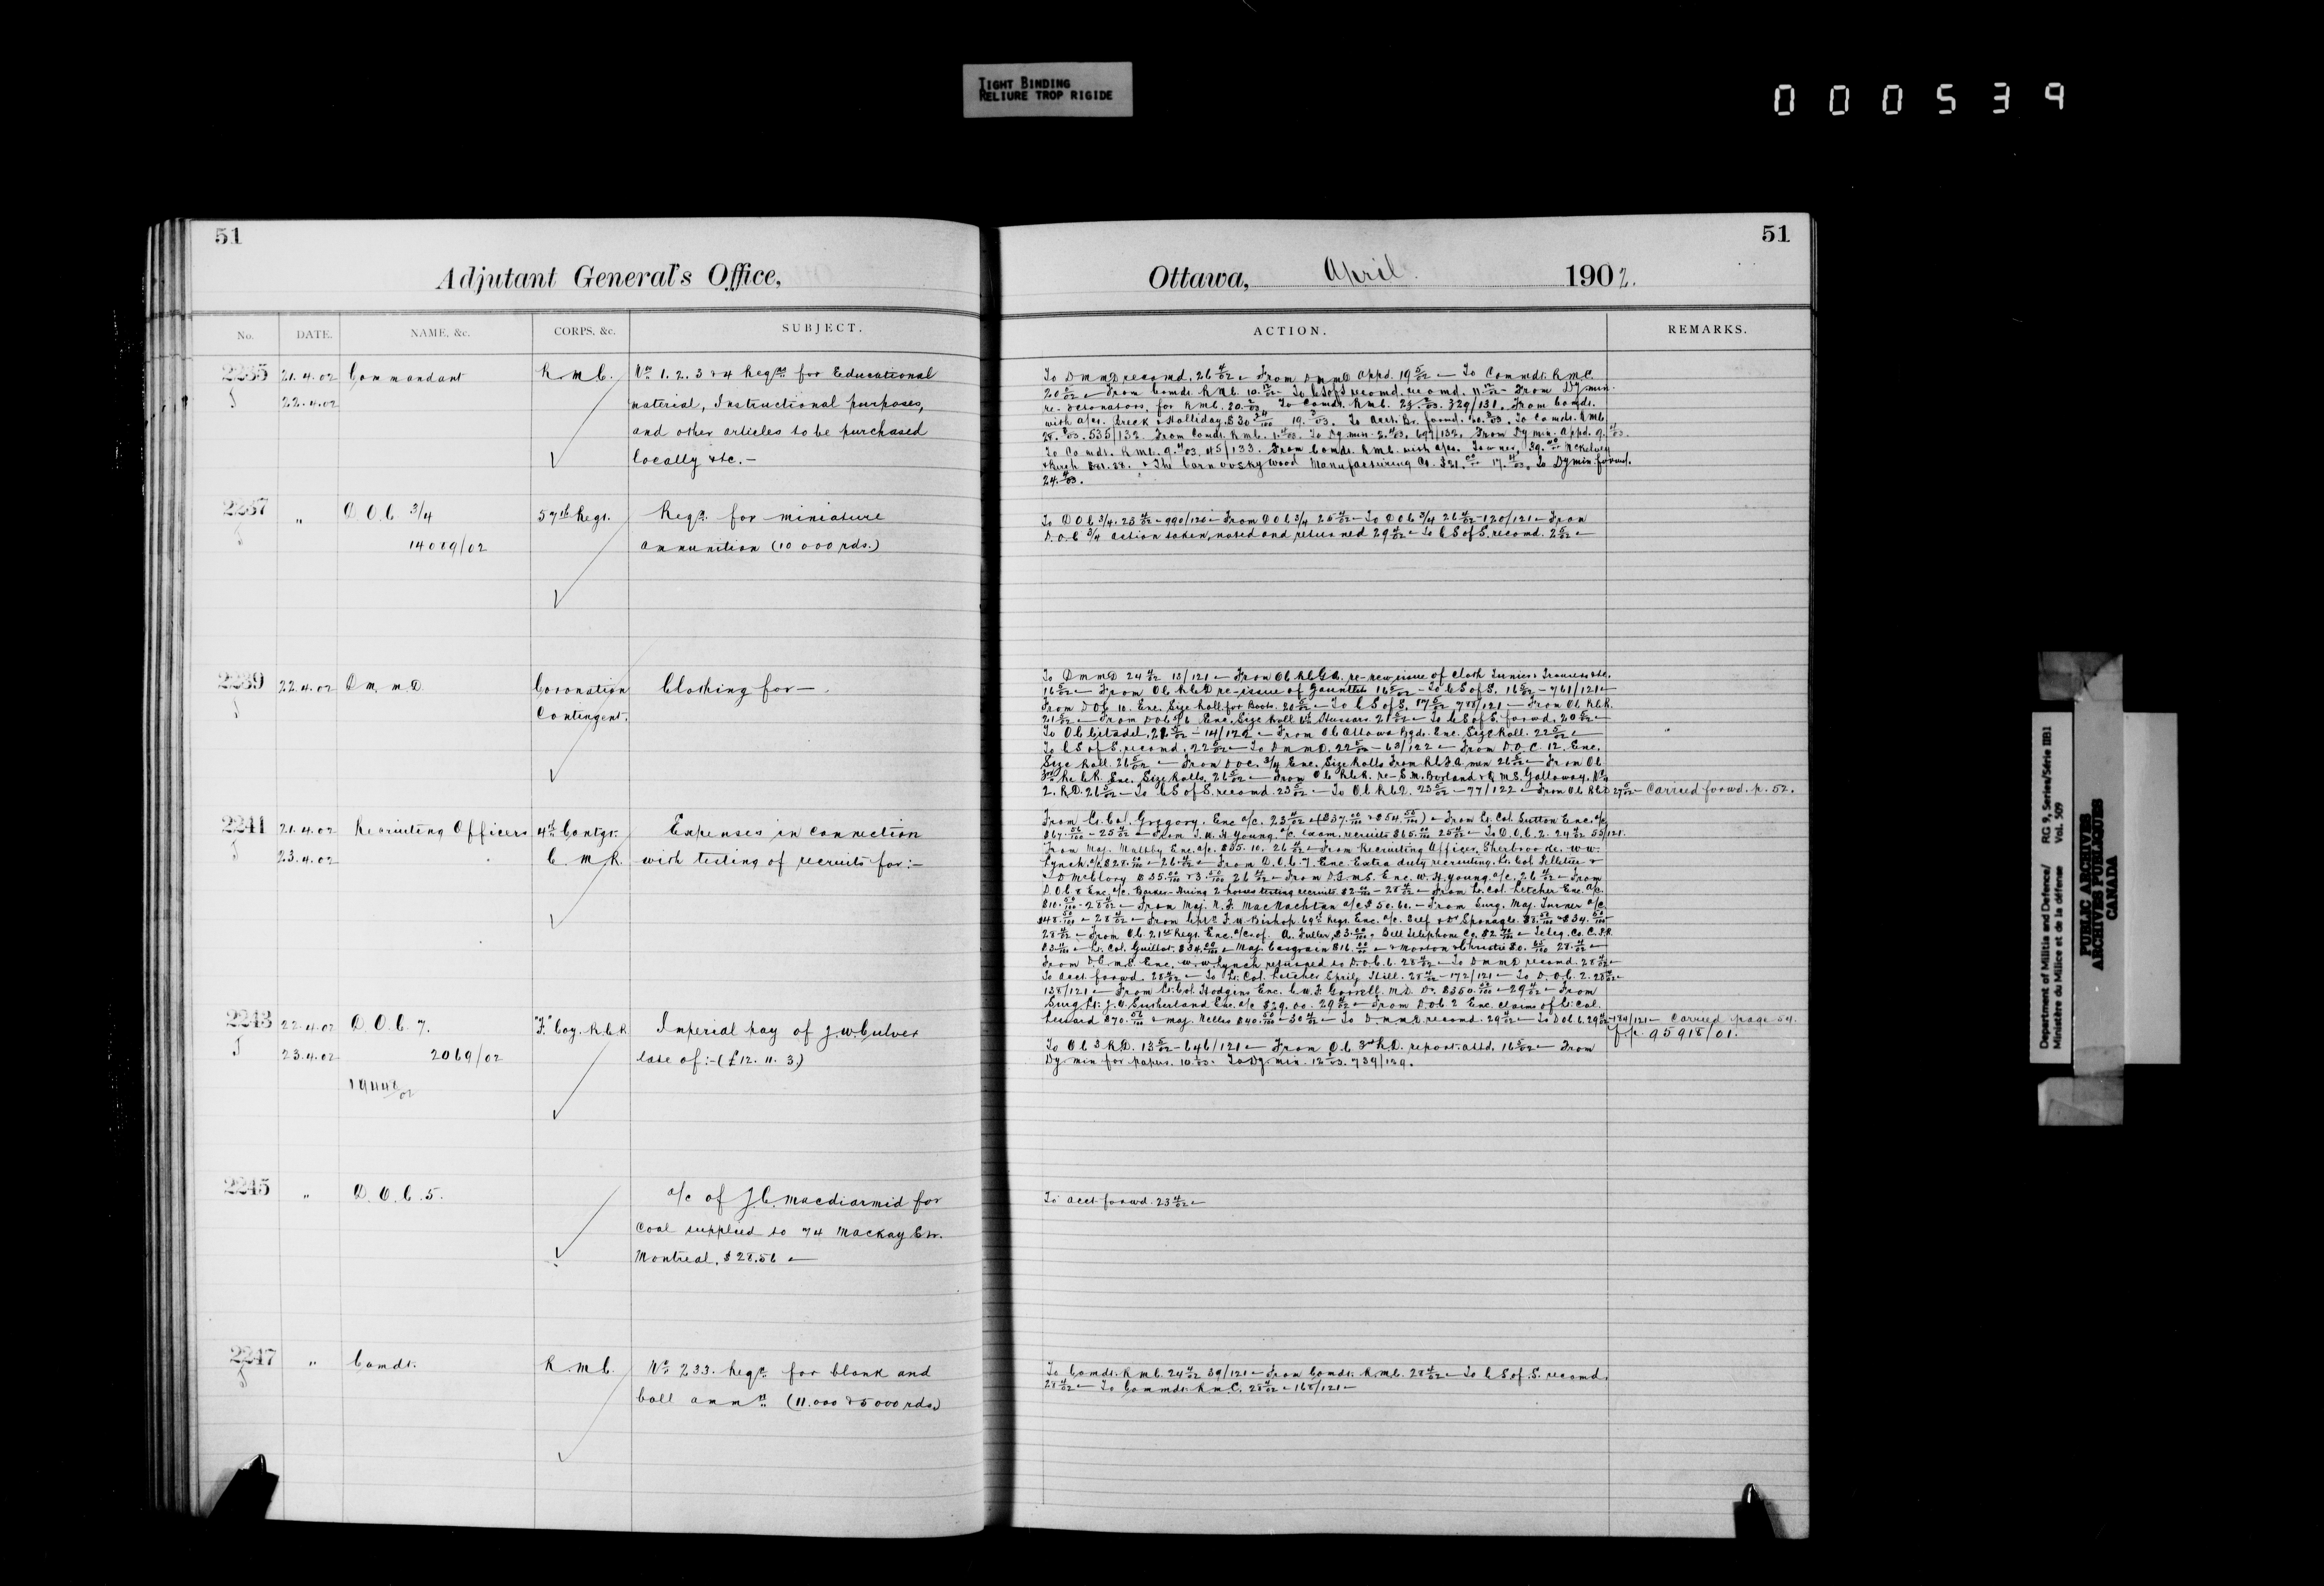 TIGHT BINDING
RELIURE TROP RIGIDE
000539
51
Adjutant General's Office,
No. DATE. NAME, &c. CORPS, &c. SUBJECT.
2235 21.4.02 Commandant R.M.C. Nos 1. 2. 3 & 4 Reqns for Educational
22.4.02 material, Instructional purposes,
and other articles to be purchased
locally &tc. —
2237 " D.O.C. 3/4 57th Regt. Reqn. for miniature
14089/02 ammunition (10 000 rds.)
2239 22.4.02 D.M.M.D. Coronation Clothing for — .
Contingent.
2241 21.4.02 Recruiting Officers 4th Contgt. Expenses in connection
23.4.02 C.M.R. with testing of recruits for :-
2243 22.4.02 D.O.C. 7. "F" Coy. R.C.R. Imperial pay of J.W. Culver
23.4.02 2069/02 late of :- (£12. 11. 3)
2245 " D.O.C. 5. a/c of J.C. Macdiarmid for
Coal supplied to 74 Mackay St.
Montreal. $28.56 —
2247 " Comdt. R.M.C. No 233. Reqn. for blank and
ball ammn. (11.000 & 5000 rds.)
51
Ottawa, April 1902.
ACTION. REMARKS.
To D M M D recomd. 26 4/02 — From D M M D appd. 19 5/02 — To Commdt. R.M.C.
20 5/02 — From Comdt. R.M.C. 10. 12/02 — To C S of S recomd. 11 12/02 — From Dy Min.
re- detonators, for R.M.C. To Comdt. R.M.C. 329/131. From Comdt.
with a/cs. & Halliday. $30 To Acct. Br. forwd. To Comdt. R.M.C.
535/132. From Comdt. R.M.C. To Dy. Min. 697/132. From Dy Min. Appd.
To Comdt. R.M.C. 45/133. From Comdt. R.M.C. with a/cs.
& The Wood Manufacturing Co. $21. To Dy Min forwd.
24.
To D O C 3/4. 23 4/02 — 990/120 — From D O C 3/4 25 4/02 — To D O C 3/4 26 4/02 — 120/121 — From
D.O.C 3/4 action taken, noted and returned 29 4/02 — To C S of S. recomd. 2 5/02 —
To D M M D 24 4/02 13/121 — From O C R.C.G.A. re-new issue of Cloth Tunics & Trousers &tc.
16 5/02 — From O C R C D re-issue of Gauntlets 16 5/02 — To C S of S. 16 5/02 — 761/121 —
From D O C 10. Enc. Size Roll for Boots. 20 5/02 — To C S of S. 788/121 — From O C. R.C.R.
21 5/02 — From D O C Enc. Size Roll 6th Hussars 21 5/02 — To C S of S. forwd. 20 5/02 —
To O C Citadel, 5/02 — 14/122 — From O C Ottawa Bgde. Enc. Size Roll. 22 5/02 —
To C S of S. recomd. 22 5/02 — To D M M D. 22 5/02 — 63/122 — From D.O.C. 12. Enc.
Size Roll. 26 5/02 — From D O C. 3/4 Enc. Size Rolls From 26 5/02 — From O C
R C R Enc. Size Rolls. 26 5/02 — From O C R.C.R. re- S.M. Borland & Q M S. Galloway. No
2. R.D. 26 5/02 — To C S of S. recomd. 23 5/02 — To O.C. 23 5/02 — 77/122 — From O C R C D 27 5/02 — Carried forwd. p. 52.
From Lt. Col. Gregory. Enc a/c. 23 4/02 ($37. & $54.) — From Lt. Col. Sutton Enc. a/c
$67. — 25 4/02 — From Young. a/c. exam. recruits $65. 25 4/02 — To D.O.C. 2. 24 4/02 55/121.
From Maj. Maltby Enc. a/c. $85. 10. 26 4/02 — From Recruiting Officer, Sherbrooke. W.W.
Lynch. a/c $28. — 26 4/02 — From D.O.C. 7. Enc. Extra duty recruiting. Lt. Col. Pelletier &
$35. & 3. 26 4/02 — From D.G.M.S. Enc. W.H. Young. a/c. 26 4/02 — From
D.O.C 8 Enc. a/c. hiring 2 horses testing recruits. $2 — 28 4/02 — From Lt. Col. Letcher Enc. a/c.
$10. — 28 4/02 — From Maj. N.F. MacNachtan a/c $50.60. — From Surg. Maj. Turner a/c
$48. — 28 4/02 — From Bishop. 69th Regt. Enc. a/c. Self & Dr. Sponagle. $8. & $34.
28 4/02 — From O.C. 21st Regt. Enc. a/cs of. A. Fuller, $3. Bell Telephone Co. $2 — Teleg. Co. C.P.R.
$3 — Lt. Col. Guillot. $34. — Maj. Casgrain $16. — & Morton & Christie $0. 28. 4/02 —
From D.G.M.S. Enc. W.W. Lynch returned to D.O.C. 6. 28 4/02 — To D M M D recomd. 28 4/02 —
To Acct. forwd. 28 4/02 — To Lt. Col. Letcher 28 4/02 — 172/121 — To D.O.C. 2. 28 4/02 —
138/121 — From Lt. Col. Hodgins Enc. C.W.F. Gorrell. M.D. Dr. $350. — 29 4/02 — From
Surg. Lt. J.A. Sutherland Enc. a/c $29.00. 29 4/02 — From D.O.C 2 Enc. claims of Lt. Col.
$70. & Maj. Nelles $40. — 30 4/02 — To D M M D. recomd. 29 4/02 — To D O C 6. 29 4/02 184/121 — Carried page 54.
f.p. 95918/01.
To O C 3 R.D. 13 5/02 — 646/121 — From O.C. 3rd R.D. report attd. 16 5/02 — From
Dy Min for papers. 10. To Dy. Min. 12 739/129.
To Acct forwd. 23 4/02 —
To Comdt. R.M.C. 24 4/02 39/121 — From Comdt. R.M.C. 28 4/02 — To C S of S. recomd.
28 4/02 — To Commdt. R.M.C. 28 4/02 — 168/121 —
Department of Militia and Defence/ RG 9, Series/Série IIB1
Ministère du Milice et de la défense Vol. 509
PUBLIC ARCHIVES
ARCHIVES PUBLIQUES
CANADA